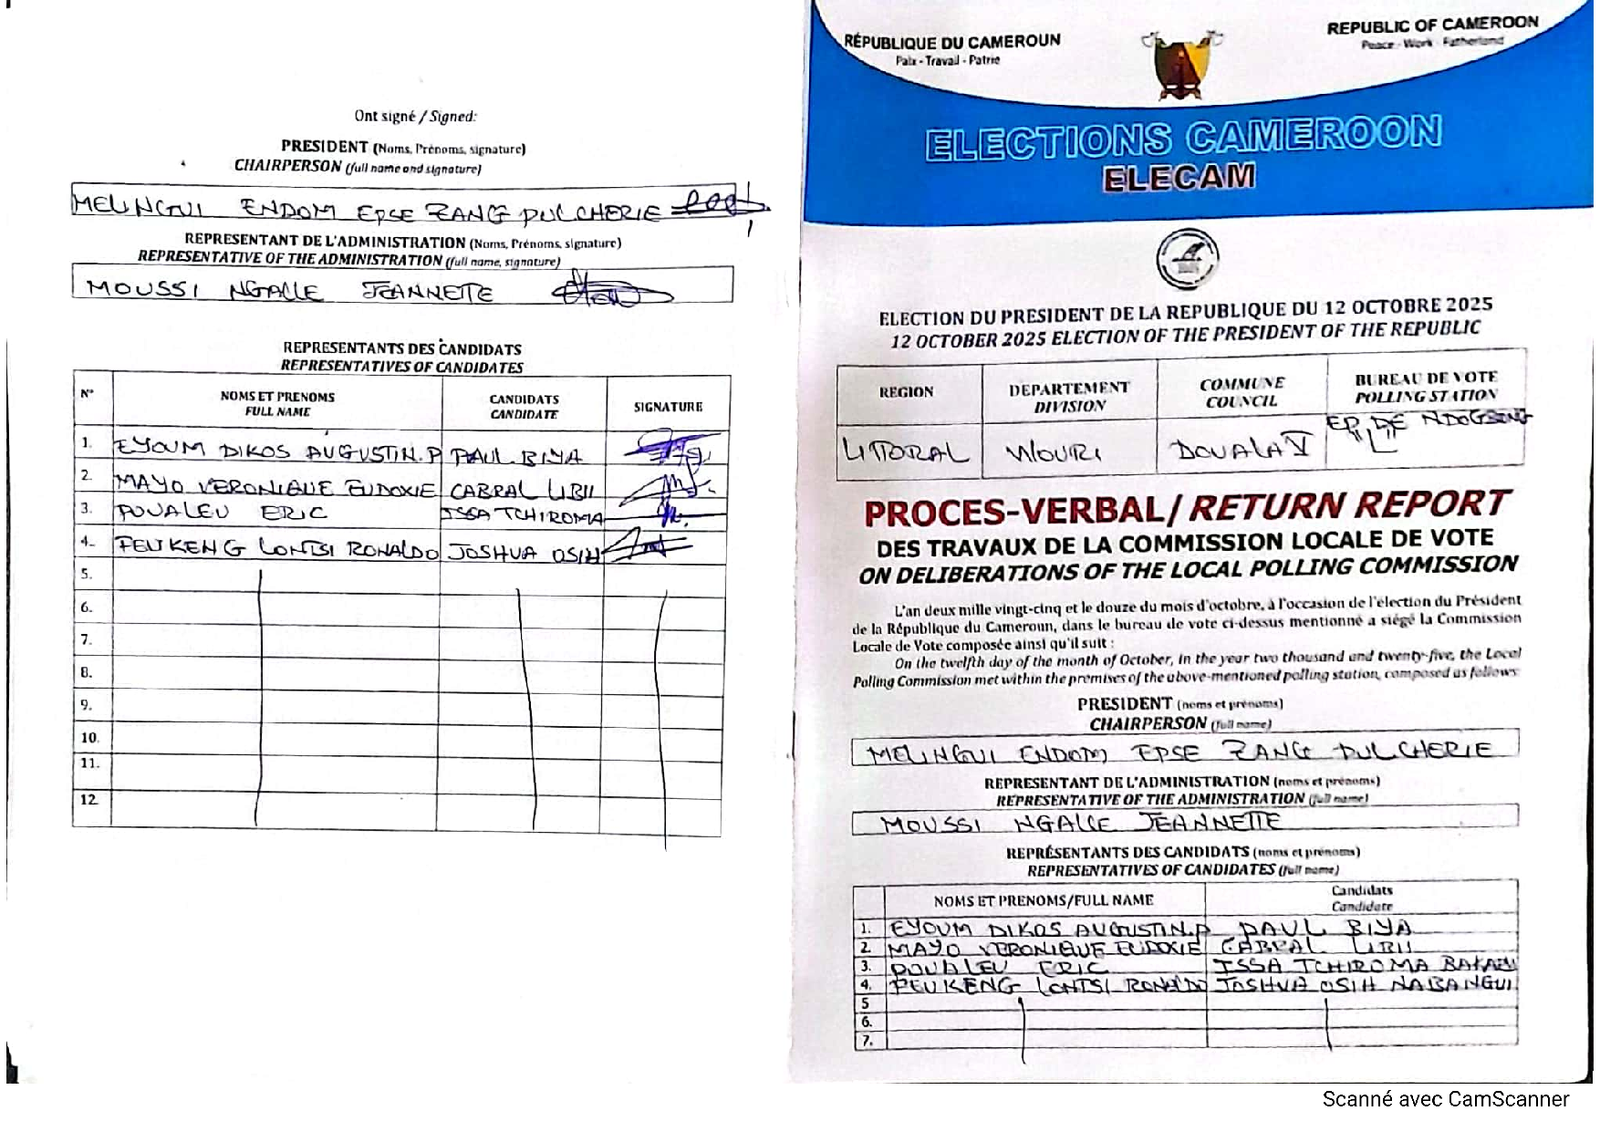 Ont signé / Signed:
PRESIDENT (Noms, Prénoms, signature)
CHAIRPERSON (full name and signature)
MELINGUI ENDOM EPSE ZANG PULCHERIE
REPRESENTANT DE L'ADMINISTRATION (Noms, Prénoms, signature)
REPRESENTATIVE OF THE ADMINISTRATION (full name, signature)
MOUSSI NGALLE JEANNETTE
REPRESENTANTS DES CANDIDATS
REPRESENTATIVES OF CANDIDATES
N° NOMS ET PRENOMS CANDIDATS SIGNATURE
FULL NAME CANDIDATE
1. EYOUM DIKOS AUGUSTIN.P PAUL BIYA
2. MAYO VERONIQUE EUDOXIE CABRAL LIBII
3. POUALEU ERIC ISSA TCHIROMA
4. FEUKENG LONTSI RONALDO JOSHUA OSIH
5.
6.
7.
8.
9.
10.
11.
12.
RÉPUBLIQUE DU CAMEROUN
Paix - Travail - Patrie
REPUBLIC OF CAMEROON
Peace - Work - Fatherland
ELECTIONS CAMEROON
ELECAM
ELECTION DU PRESIDENT DE LA REPUBLIQUE DU 12 OCTOBRE 2025
12 OCTOBER 2025 ELECTION OF THE PRESIDENT OF THE REPUBLIC
REGION DEPARTEMENT COMMUNE BUREAU DE VOTE
DIVISION COUNCIL POLLING STATION
LITTORAL WOURI DOUALA V EP DE NDOGSONG
PROCES-VERBAL/ RETURN REPORT
DES TRAVAUX DE LA COMMISSION LOCALE DE VOTE
ON DELIBERATIONS OF THE LOCAL POLLING COMMISSION
L'an deux mille vingt-cinq et le douze du mois d'octobre, à l'occasion de l'élection du Président
de la République du Cameroun, dans le bureau de vote ci-dessus mentionné a siégé la Commission
Locale de Vote composée ainsi qu'il suit :
On the twelfth day of the month of October, in the year two thousand and twenty-five, the Local
Polling Commission met within the premises of the above-mentioned polling station, composed as follows:
PRESIDENT (noms et prénoms)
CHAIRPERSON (full name)
MELINGUI ENDOM EPSE ZANG PULCHERIE
REPRESENTANT DE L'ADMINISTRATION (noms et prénoms)
REPRESENTATIVE OF THE ADMINISTRATION (full name)
MOUSSI NGALLE JEANNETTE
REPRÉSENTANTS DES CANDIDATS (noms et prénoms)
REPRESENTATIVES OF CANDIDATES (full name)
NOMS ET PRENOMS/FULL NAME Candidats
Candidate
1. EYOUM DIKOS AUGUSTIN.P PAUL BIYA
2. MAYO VERONIQUE EUDOXIE CABRAL LIBII
3. POUALEU ERIC ISSA TCHIROMA BAKARY
4. FEUKENG LONTSI RONALDO JOSHUA OSIH NABANGUI
5
6.
7.
Scanné avec CamScanner